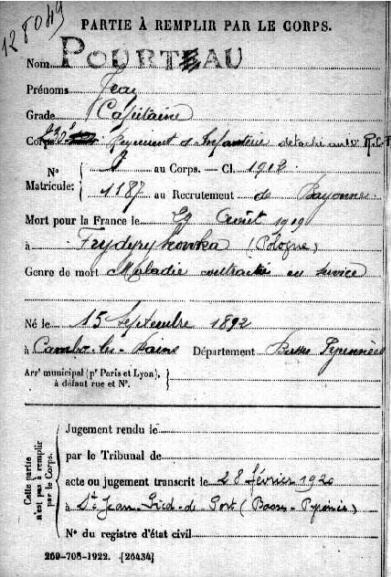 128049
PARTIE À REMPLIR PAR LE CORPS.
Nom POURTEAU
Prénoms Jean
Grade Capitaine
Corps Régiment d'Infanterie détaché au
N° Matricule: au Corps. — Cl. 1912
1187 au Recrutement de Bayonne
Mort pour la France le 29 Août 1919
à (Pologne)
Genre de mort Maladie contractée en service
Né le 15 Septembre 1892
à Cambo-les-Bains Département Basses Pyrénées
Arrt municipal (pr Paris et Lyon), à défaut rue et N°.
Cette partie n'est pas à remplir par le Corps.
Jugement rendu le
par le Tribunal de
acte ou jugement transcrit le 28 février 1920
à St Jean-Pied-de-Port (Basses-Pyrénées)
N° du registre d'état civil
269-708-1922. [26434]